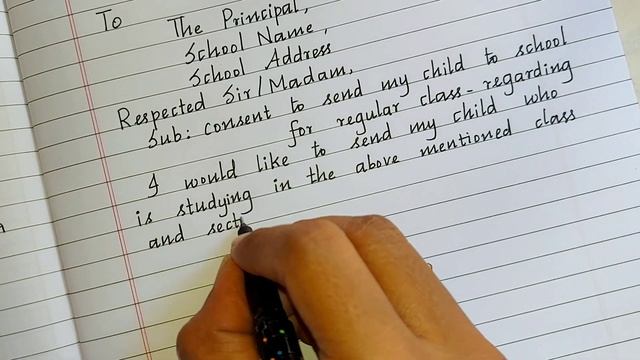 To
The Principal,
School Name,
School Address
Respected Sir/Madam,
Sub: consent to send my child to school
for regular class-regarding
I would like to send my child who
is studying in the above mentioned class
and sect